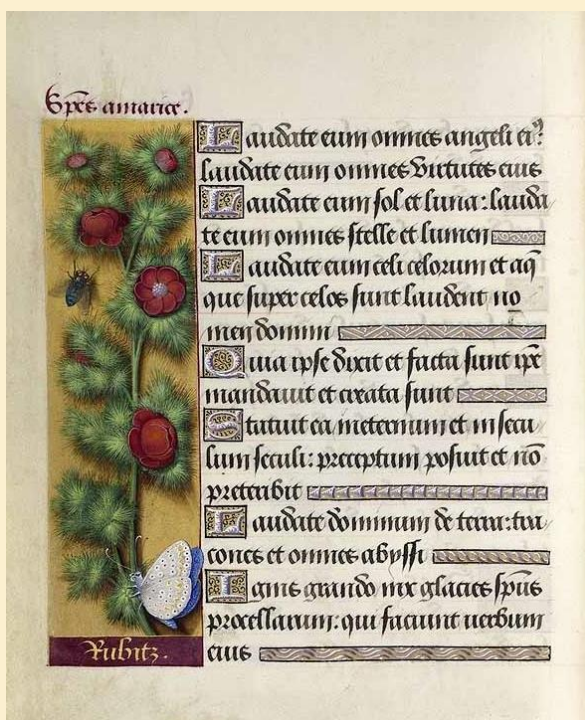 Spēs amarice.
Laudate eum omnes angeli eiꝰ:
laudate eum omnes Virtutes eius
Laudate eum sol et luna: lauda
te eum omnes stelle et lumen
Laudate eum celi celorum et aq̄
que super celos sunt laudent no
men domini
Quia ipse dixit et facta sunt ip̄e
mandauit et creata sunt
Statuit ea ineternum et in secu
lum seculi: preceptum posuit et nō
preteribit
Laudate dominum de terra: dra
cones et omnes abyssi
Ignis grando nix glacies sp̄us
procellarum: qui faciunt uerbum
eius
Rubitz.